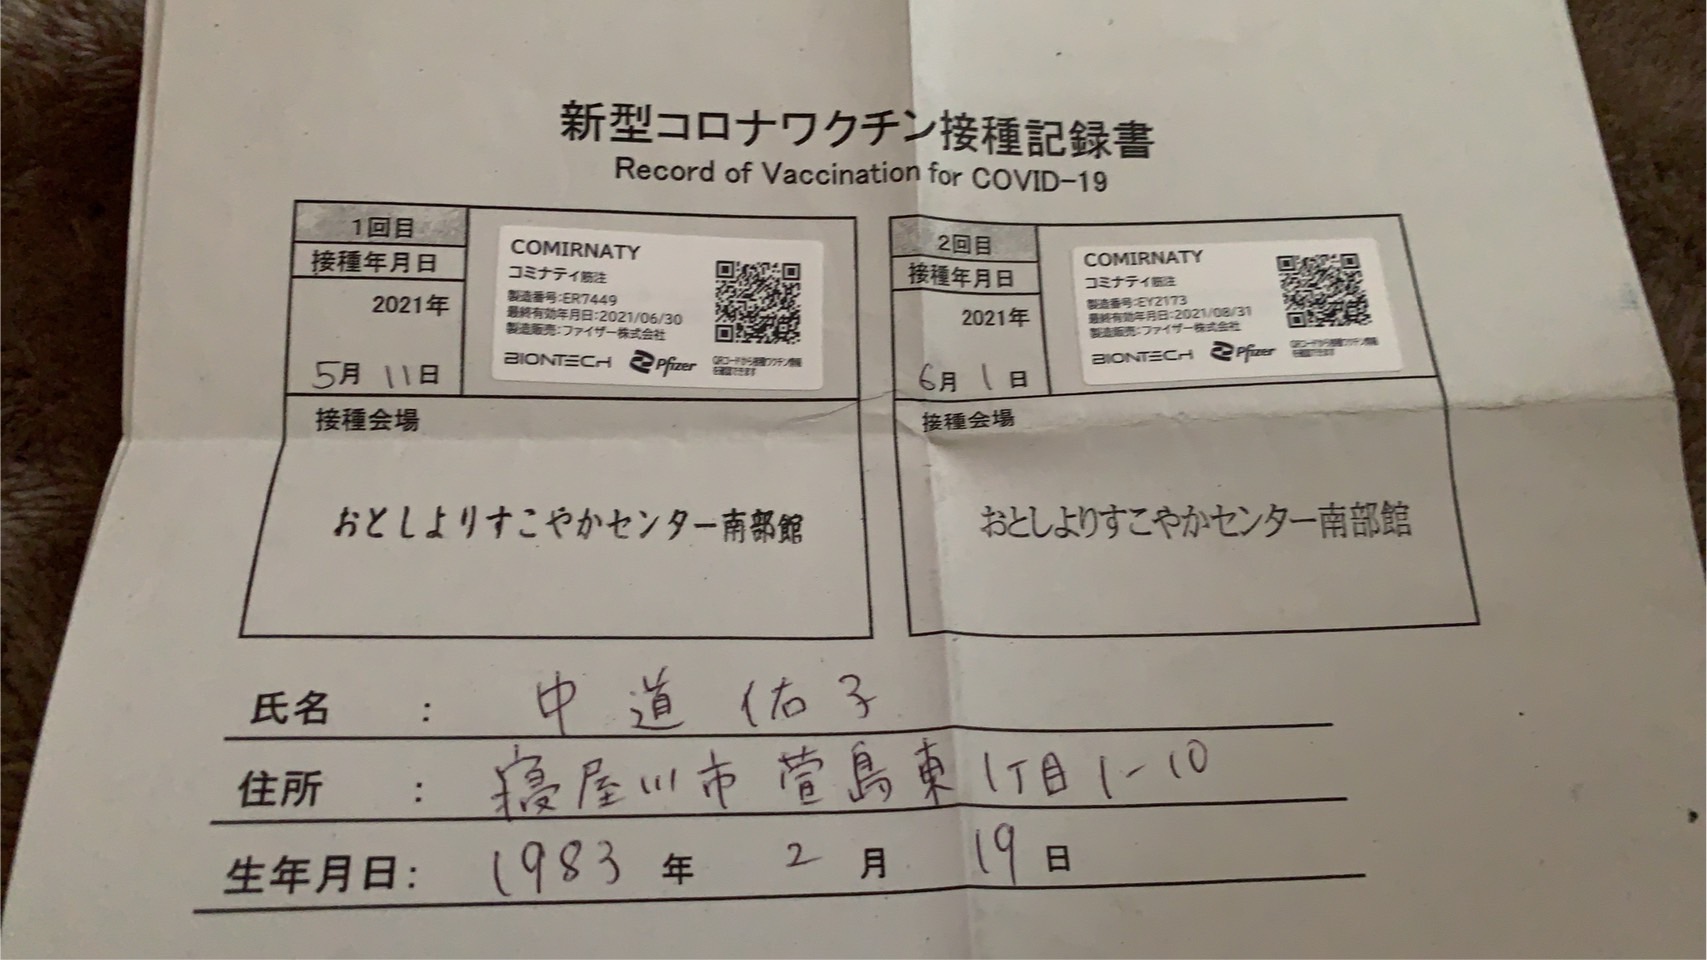 新型コロナワクチン接種記録書
Record of Vaccination for COVID-19
1回目
接種年月日
2021年
5月 11日
COMIRNATY
コミナティ筋注
製造番号:ER7449
最終有効年月日:2021/06/30
製造販売:ファイザー株式会社
BIONTECH Pfizer
QRコードから接種ワクチン情報
を確認できます
接種会場
おとしよりすこやかセンター南部館
2回目
接種年月日
2021年
6月 1日
COMIRNATY
コミナティ筋注
製造番号:EY2173
最終有効年月日:2021/08/31
製造販売:ファイザー株式会社
BIONTECH Pfizer
QRコードから接種ワクチン情報
を確認できます
接種会場
おとしよりすこやかセンター南部館
氏名 : 中道佑子
住所 : 寝屋川市萱島東1丁目1-10
生年月日: 1983年 2月 19日